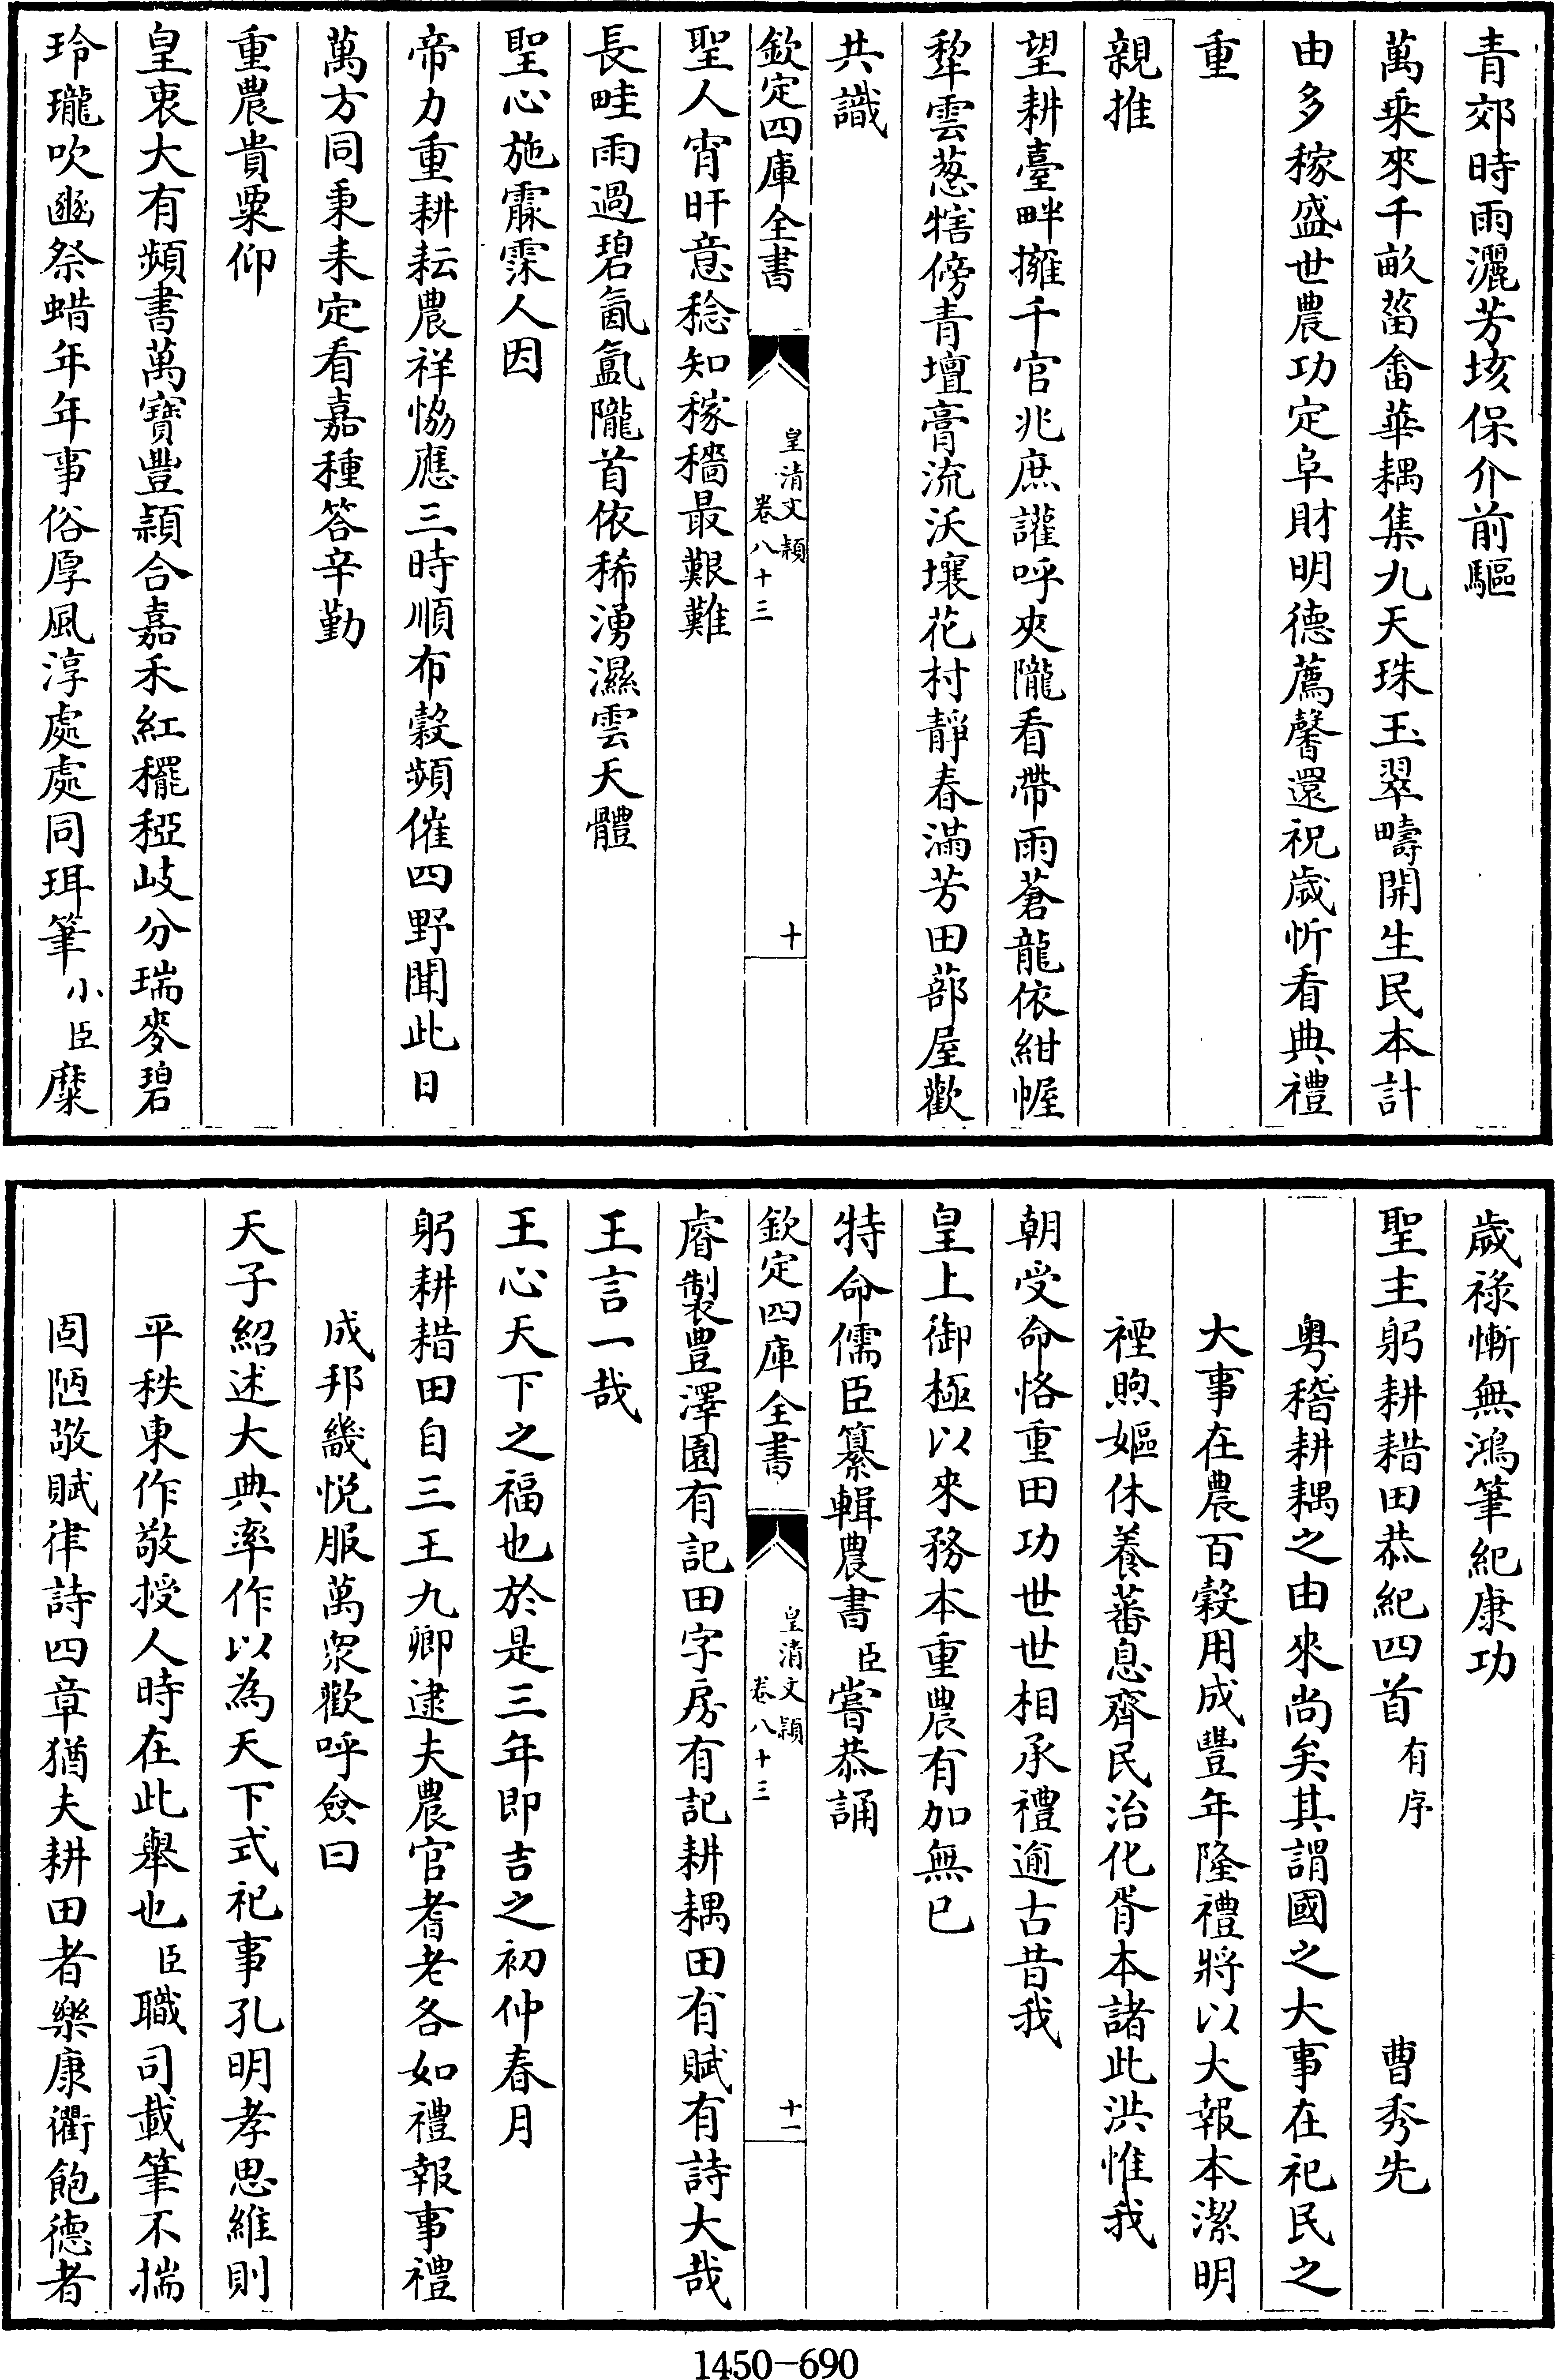 青郊時雨灑芳垓保介前驅
萬乘來千畝菑畬華耦集九天珠玉翠疇開生民本計
由多稼盛世農功定阜財明德薦馨還祝歲忻看典禮
重
親推
望耕臺畔擁千官兆庶讙呼夾隴看帶雨蒼龍依紺幄
犂雲葱犗傍青壇膏流沃壤花村靜春滿芳田蔀屋歡
共識
欽定四庫全書
皇清文穎
卷八十三
十
聖人宵旰意稔知稼穡最艱難
長畦雨過碧氤氳隴首依稀湧濕雲天體
聖心施霢霂人因
帝力重耕耘農祥恊應三時順布穀頻催四野聞此日
萬方同秉耒定看嘉種答辛勤
重農貴粟仰
皇衷大有頻書萬寶豐穎合嘉禾紅䆉稏岐分瑞麥碧
玲瓏吹豳祭蜡年年事俗厚風淳處處同珥筆小臣糜
歲祿慚無鴻筆紀康功
聖主躬耕耤田恭紀四首有序 曹秀先
粵稽耕耦之由來尚矣其謂國之大事在祀民之
大事在農百穀用成豐年隆禮將以大報本潔明
禋煦嫗休養蕃息齊民治化胥本諸此洪惟我
朝受命恪重田功世世相承禮逾古昔我
皇上御極以來務本重農有加無已
特命儒臣纂輯農書臣嘗恭誦
欽定四庫全書
皇清文穎
卷八十三
十一
睿製豊澤園有記田字房有記耕耦田有賦有詩大哉
王言一哉
王心天下之福也於是三年即吉之初仲春月
躬耕耤田自三王九卿逮夫農官耆老各如禮報事禮
成邦畿悅服萬衆歡呼僉曰
天子紹述大典率作以為天下式祀事孔明孝思維則
平秩東作敬授人時在此舉也臣職司載筆不揣
固陋敬賦律詩四章猶夫耕田者樂康衢飽德者
1450-690